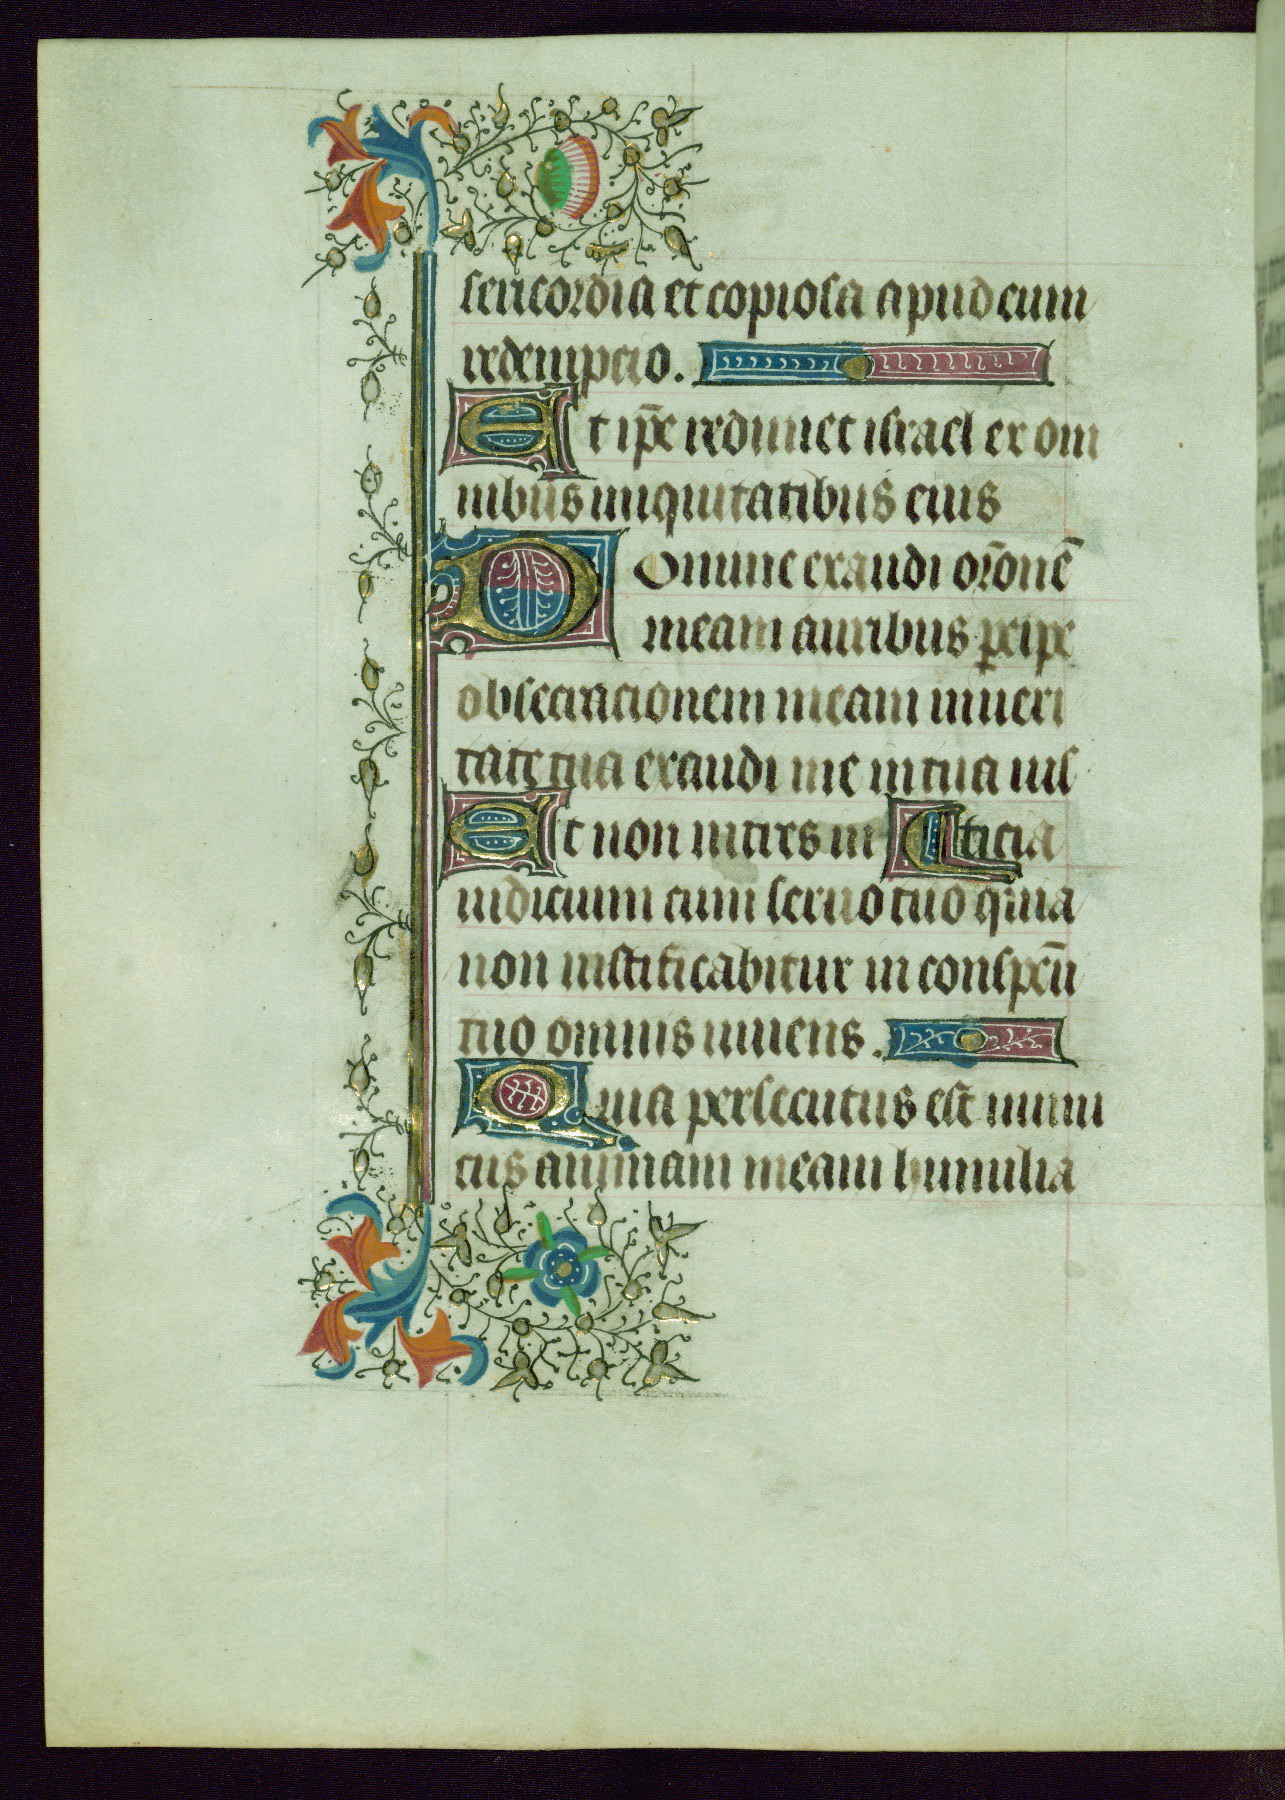 sericordia et copiosa apud eum
redempcio.
Et ip̄e redimet israel ex om
nibus iniquitatibus eius
Domine exaudi or̄onē
meam auribus ꝑcipe
obsecracionem meam in ueri
tate tua exaudi me in tua ius
Et non intres in ticia
iudicium cum seruo tuo quia
non iustificabitur in conspcū
tuo omnis uiuens.
Quia persecutus est inimi
cus animam meam humilia